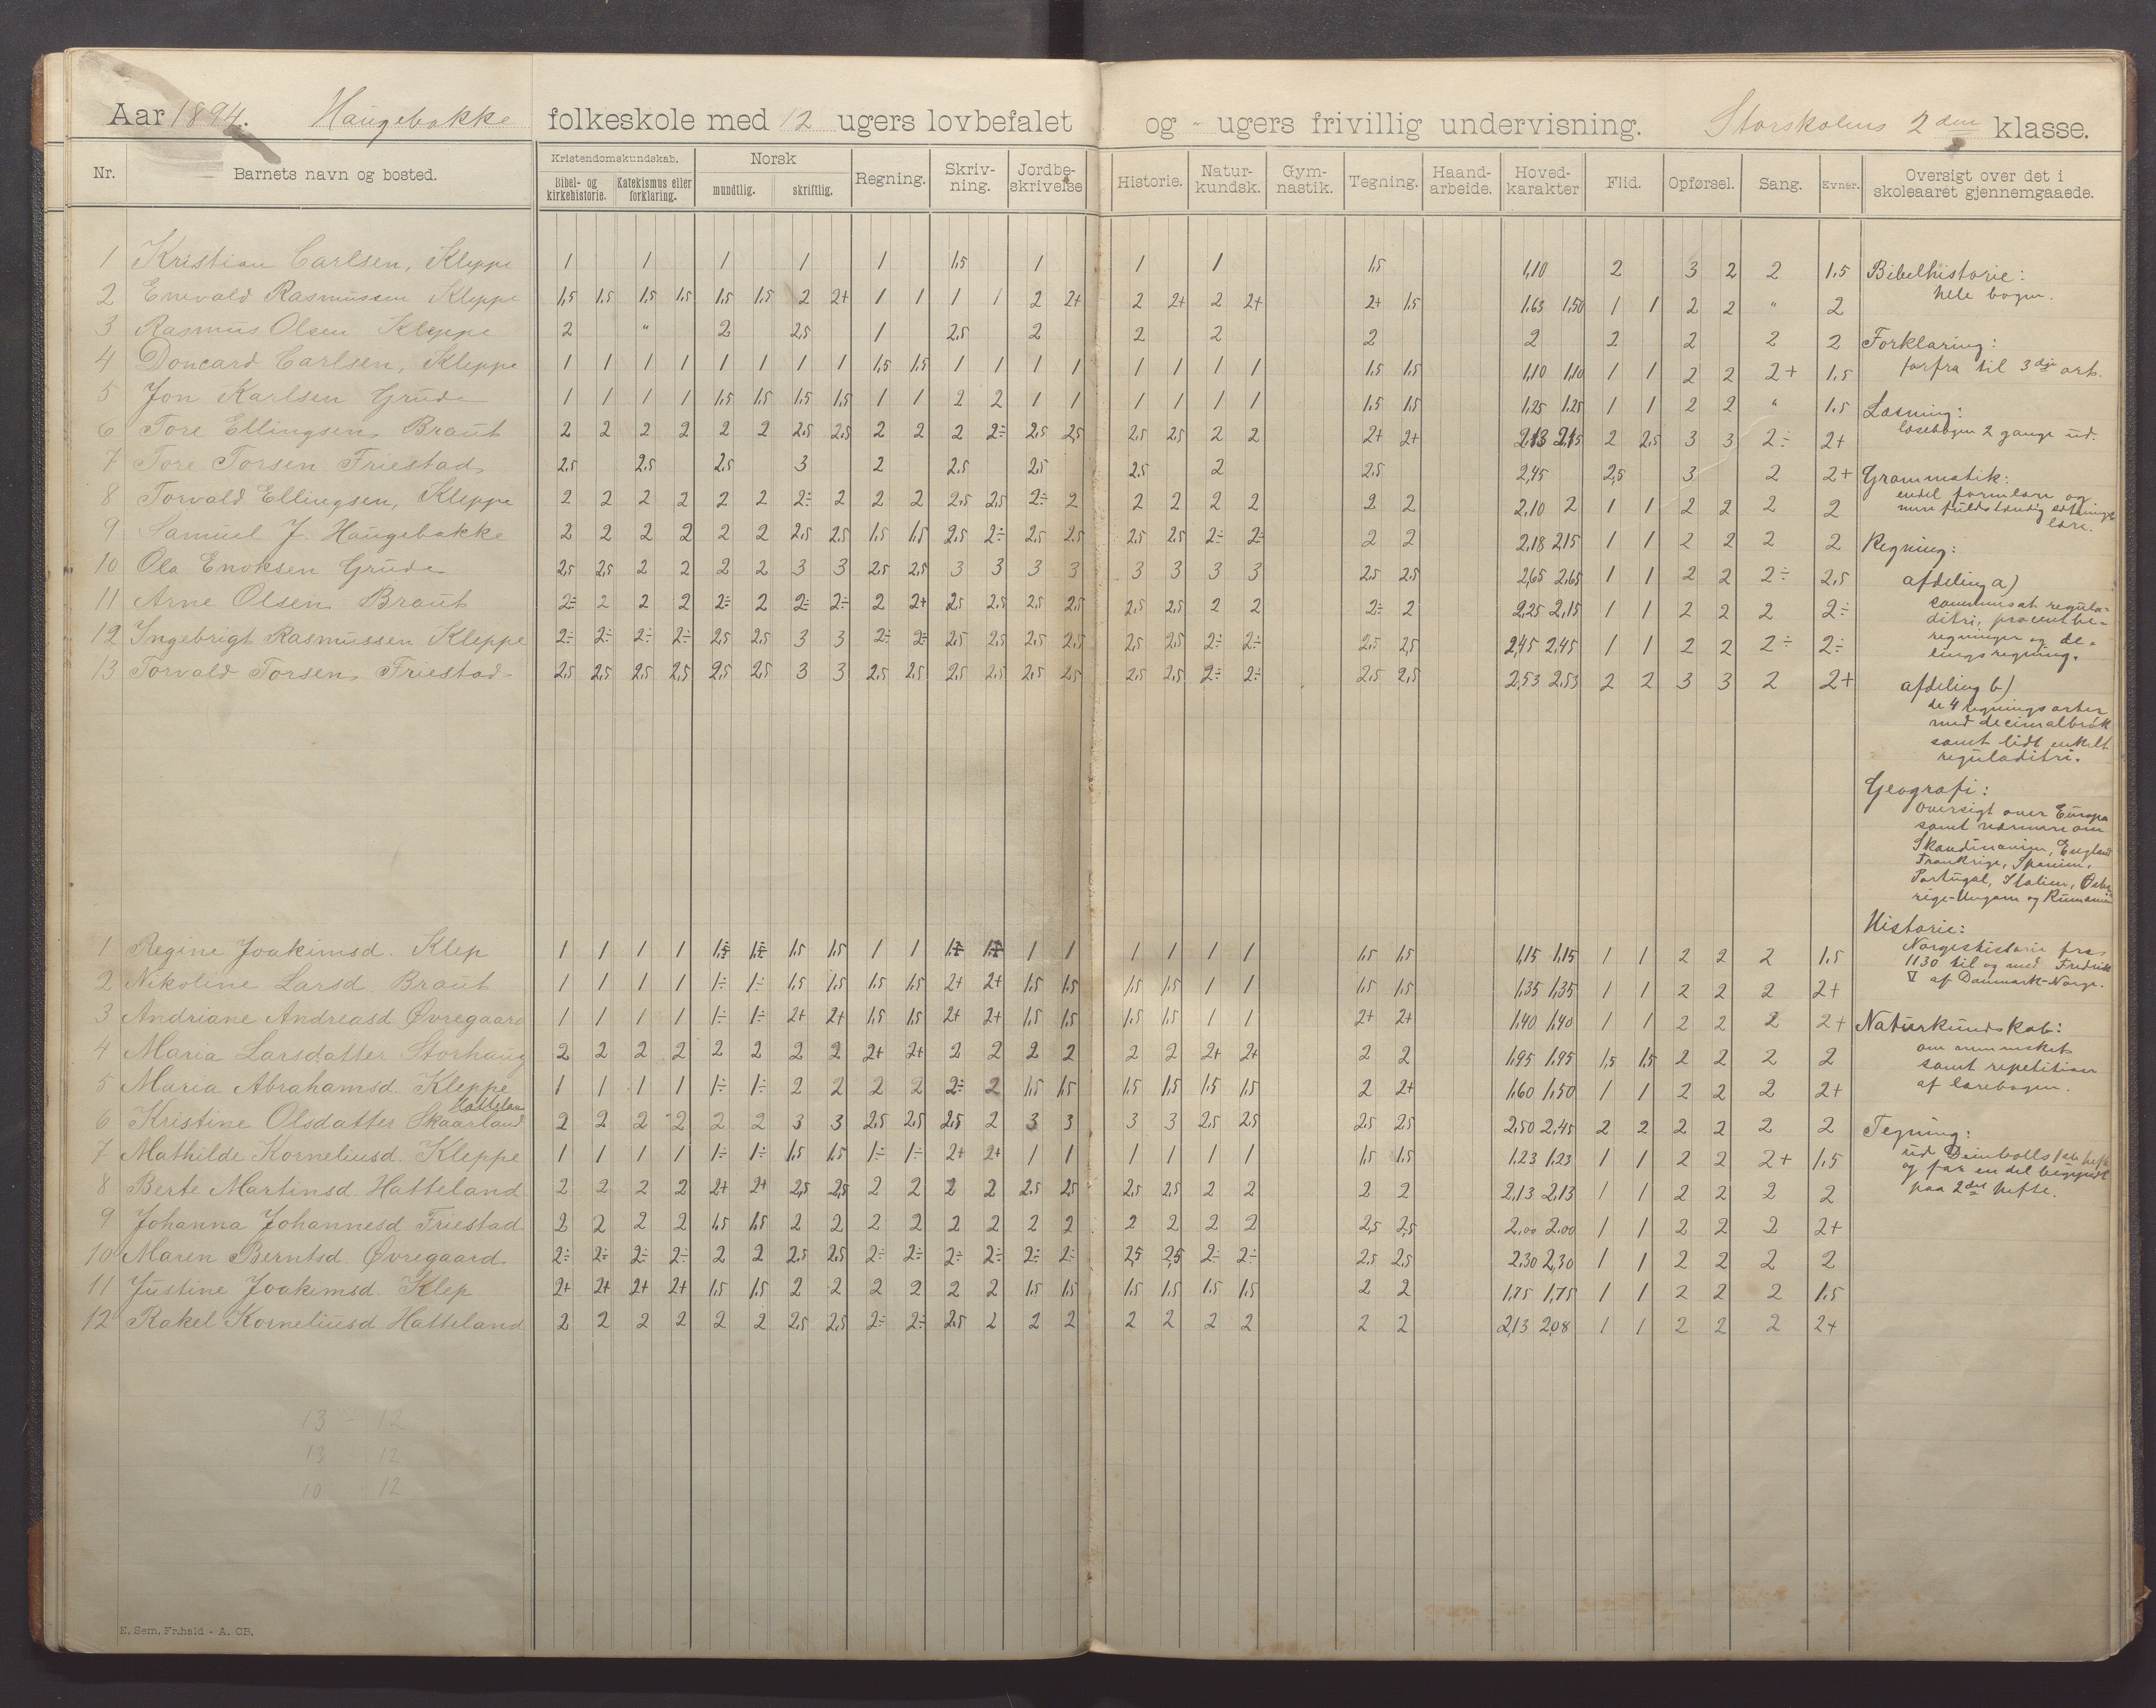 Aar 1894. Haugebakke folkeskole med 12 ugers lovbefalet og " ugers frivillig undervisning. Storskolens 2den klasse.
Nr. Barnets navn og bosted. Kristendomskundskab. Bibel- og kirkehistorie. Katekismus eller forklaring. Norsk mundtlig. skriftlig. Regning. Skriv-ning. Jordbe-skrivelse Historie. Natur-kundsk. Gym-nastik. Tegning. Haand-arbeide. Hoved-karakter Flid. Opførsel. Sang. Evner. Oversigt over det i skoleaaret gjennemgaaede.
1 Kristian Carlsen, Kleppe 1 1 1 1 1 1,5 1 1 1 1,5 1,10 2 3 2 2 1,5
2 Enevald Rasmussen Kleppe 1,5 1,5 1,5 1,5 1,5 1,5 2 2+ 1 1 1 1 2 2+ 2 2+ 2 2+ 2+ 1,5 1,63 1,50 1 1 2 2 " 2
3 Rasmus Olsen Kleppe 2 " 2 2,5 1 2,5 2 2 2 2 2 2 2 2 2
4 Doncard Carlsen, Kleppe 1 1 1 1 1 1 1 1 1,5 1,5 1 1 1 1 1 1 1 1 1,5 1,5 1,10 1,10 1 1 2 2 2+ 1,5
5 Jon Karlsen Grude 1 1 1 1 1,5 1,5 1,5 1,5 1 1 2 2 1 1 1 1 1 1 1,5 1,5 1,25 1,25 1 1 2 2 " 1,5
6 Tore Ellingsen, Braut 2 2 2 2 2 2 2,5 2,5 2 2 2 2÷ 2,5 2,5 2,5 2,5 2 2 2+ 2+ 2,13 2,15 2 2,5 3 3 2÷ 2+
7 Tore Torsen Friestad 2,5 2,5 2,5 3 2 2,5 2,5 2,5 2 2,5 2,45 2,5 3 2 2+
8 Torvald Ellingsen, Kleppe 2 2 2 2 2 2 2÷ 2 2 2 2,5 2,5 2÷ 2 2 2 2 2 2 2 2,10 2 1 1 2 2 2 2
9 Samuel J. Haugebakke 2 2 2 2 2 2 2,5 2,5 1,5 1,5 2,5 2÷ 2,5 2,5 2,5 2,5 2÷ 2÷ 2 2 2,18 2,15 1 1 2 2 2 2
10 Ola Enoksen Grude 2,5 2,5 2 2 2 2 3 3 2,5 2,5 3 3 3 3 3 3 3 3 2,5 2,5 2,65 2,65 1 1 2 2 2÷ 2,5
11 Arne Olsen Braut 2÷ 2 2 2 2÷ 2 2÷ 2÷ 2 2+ 2,5 2,5 2,5 2,5 2,5 2,5 2 2 2÷ 2 2,25 2,15 1 1 2 2 2 2÷
12 Ingebrigt Rasmussen Kleppe 2÷ 2÷ 2÷ 2÷ 2,5 2,5 3 3 2÷ 2÷ 2,5 2,5 2,5 2,5 2,5 2,5 2÷ 2÷ 2,5 2,5 2,45 2,45 1 1 2 2 2÷ 2÷
13 Torvald Torsen, Friestad 2,5 2,5 2,5 2,5 2,5 2,5 3 3 2,5 2,5 2,5 2,5 2,5 2,5 2,5 2,5 2÷ 2÷ 2,5 2,5 2,53 2,53 2 2 3 3 2 2+
1 Regine Joakimsd. Klep 1 1 1 1 1÷ 1÷ 1,5 1,5 1 1 1 1 1 1 1 1 1,5 1,5 1,15 1,15 1 1 2 2 2 1,5
2 Nikoline Larsd. Braut 1 1 1 1 1÷ 1÷ 1,5 1,5 1,5 1,5 2+ 2+ 1,5 1,5 1,5 1,5 1 1 1,5 1,5 1,35 1,35 1 1 2 2 2 2+
3 Andriane Andreasd. Øvregaard 1 1 1 1 1÷ 1÷ 2+ 2+ 1,5 1,5 2+ 2+ 1,5 1,5 1,5 1,5 1 1 2+ 2+ 1,40 1,40 1 1 2 2 2 2+
4 Maria Larsdatter Storhaug 2 2 2 2 2 2 2 2 2+ 2+ 2 2 2 2 2 2 2+ 2+ 2 2 1,95 1,95 1,5 1,5 2 2 2 2
5 Maria Abrahamsd. Kleppe 1 1 1 1 1÷ 1÷ 2 2 2 2 2÷ 2 1,5 1,5 1,5 1,5 1,5 1,5 2 2+ 1,60 1,50 1 1 2 2 2 2+
Hatteland
6 Kristine Olsdatter Skaarland 2 2 2 2 2 2 3 3 2,5 2,5 2,5 2 3 3 3 3 2,5 2,5 2,5 2,5 2,50 2,45 2 2 2 2 2 2
7 Mathilde Korneliusd. Kleppe 1 1 1 1 1÷ 1÷ 1,5 1,5 1÷ 1÷ 2+ 2+ 1 1 1 1 1 1 1,5 1,5 1,23 1,23 1 1 2 2 2+ 1,5
8 Berte Martinsd. Hatteland 2 2 2 2 2+ 2+ 2,5 2,5 2 2 2 2 2,5 2,5 2,5 2,5 2 2 2 2 2,13 2,13 1 1 2 2 2 2
9 Johanna Johannesd Friestad 2 2 2 2 1,5 1,5 2 2 2 2 2 2 2 2 2 2 2 2 2,5 2,5 2,00 2,00 1 1 2 2 2 2+
10 Maren Berntsd. Øvregaard 2÷ 2÷ 2÷ 2÷ 2 2 2,5 2,5 2÷ 2÷ 2÷ 2÷ 2÷ 2÷ 2,5 2,5 2÷ 2÷ 2,5 2,5 2,30 2,30 1 1 2 2 2 2
11 Justine Joakimsd. Klep 2+ 2+ 2+ 2+ 1,5 1,5 2 2 2 2 2 2 1,5 1,5 1,5 1,5 1,5 1,5 2 2 1,75 1,75 1 1 2 2 2 1,5
12 Rakel Korneliusd Hatteland 2 2 2 2 2 2 2,5 2,5 2÷ 2÷ 2,5 2 2 2 2 2 2 2 2 2 2,13 2,08 1 1 2 2 2 2+
13 - 12
13 12
10 12
Bibelhistorie:
hele bogen.
Forklaring:
forfra til 3die art.
Læsning:
læsebogen 2 gange ud.
Grammatik:
endel formlære og
mere fuldstændig sætnings
lære.
Regning:
afdeling a)
sammensat regula-
ditri, procentbe-
regninger og de-
lingsregning.
afdeling b)
de 4 regningsarter
med decimalbrøk
samt lidt enkelt
reguladitri.
Geografi:
Oversigt over Europa
samt nærmere om
Skandinavien, England
Frankrige, Spanien,
Portugal, Italien, Øster-
rige-Ungarn og Rumænien
Historie:
Norgeshistorie fra
1130 til og med Fredrik
V af Danmark-Norge.
Naturkundskab:
om mennesket
samt repetition
af lærebogen.
Tegning:
ud Deinbolls 1ste hefte
og for en del begyndt
paa 2det hefte.
E. Sem, Fr.hald - A. CB.